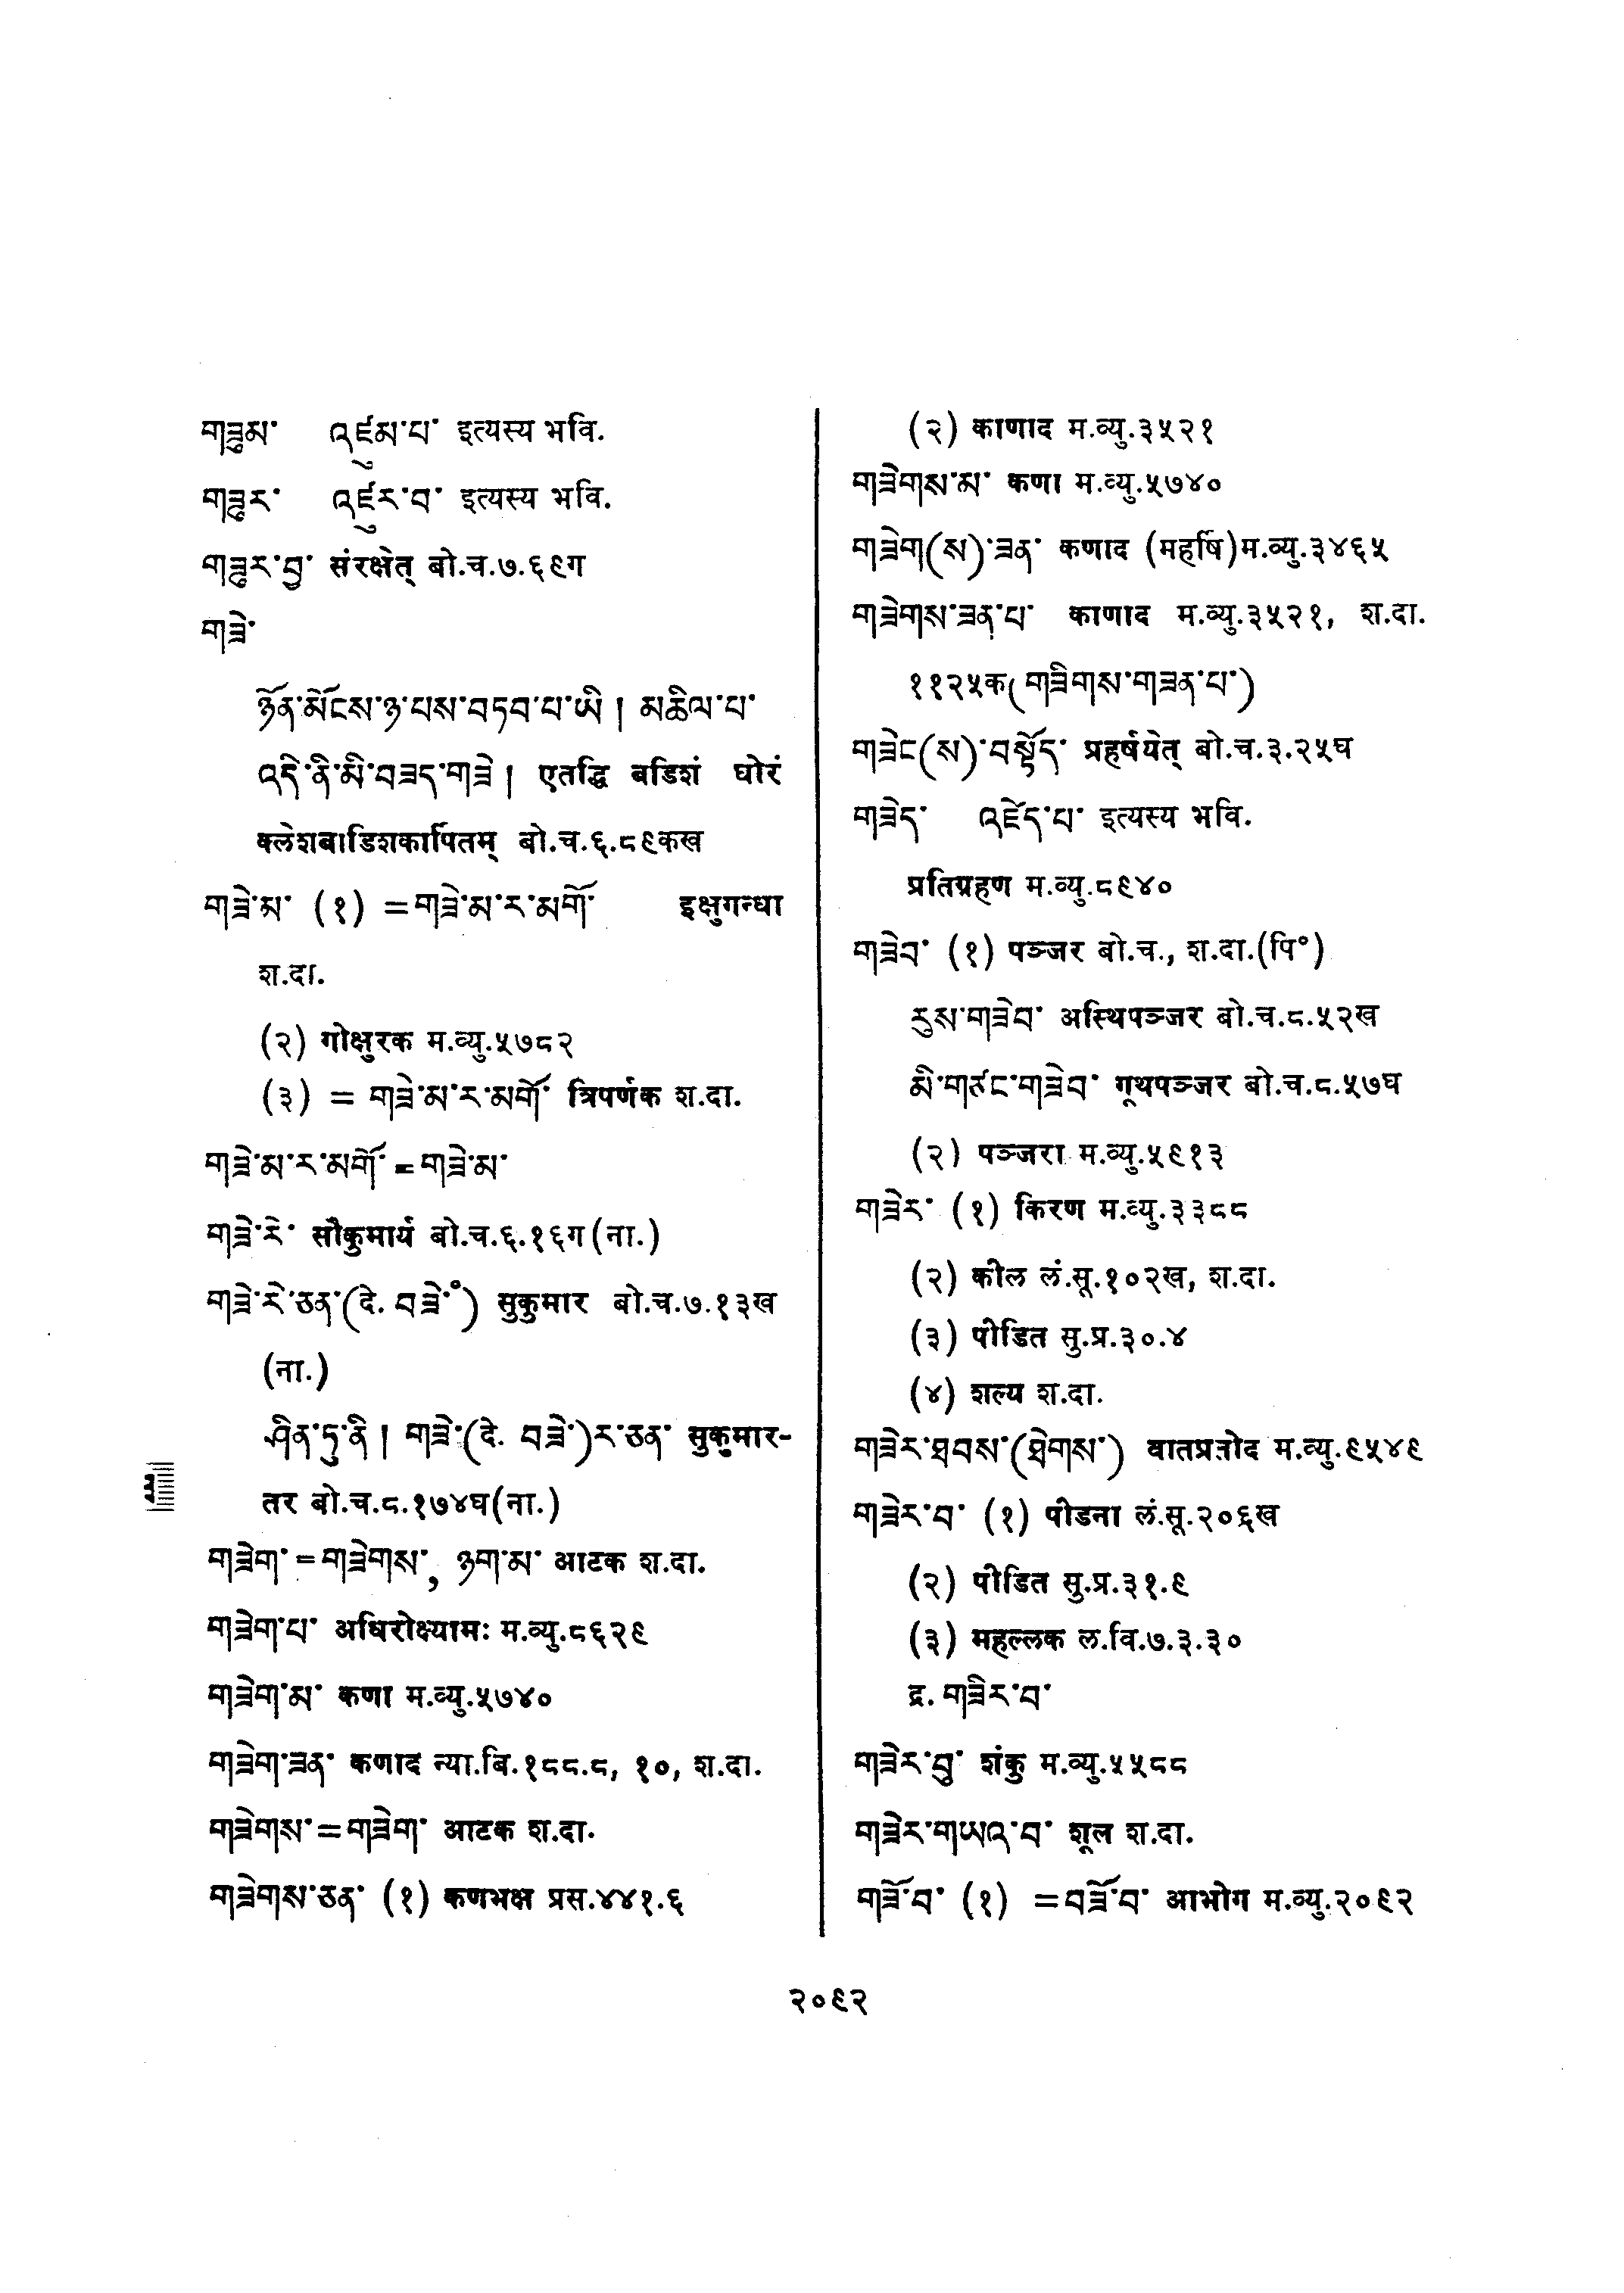 གཟུམ་ འཛུམ་པ་ इत्यस्य भवि.
གཟུར་ འཛུར་བ་ इत्यस्य भवि.
གཟུར་བྱ་ संरक्षेत् बो.च.७.६९ग
གཟེ་
ཉོན་མོངས་ཉ་པས་བཏབ་པ་ཡི། མཆིལ་པ་
འདི་ནི་མི་བཟད་གཟེ། एतद्धि बडिशं घोरं
क्लेशबाडिशकार्पितम् बो.च.६.८९कख
གཟེ་མ་ (१) =གཟེ་མ་ར་མགོ་ इक्षुगन्धा
श.दा.
(२) गोक्षुरक म.व्यु.५७८२
(३) = གཟེ་མ་ར་མགོ་ त्रिपर्णक श.दा.
གཟེ་མ་ར་མགོ་ =གཟེ་མ་
གཟེ་རེ་ सौकुमार्य बो.च.६.१६ग(ना.)
གཟེ་རེ་ཅན་(དེ. བཟེ་°) सुकुमार बो.च.७.१३ख
(ना.)
ཤིན་ཏུ་ནི། གཟེ་(དེ. བཟེ་)ར་ཅན་ सुकुमार-
तर बो.च.८.१७४घ(ना.)
གཟེག་ =གཟེགས་, ཉག་མ་ आटक श.दा.
གཟེག་པ་ अधिरोक्ष्यामः म.व्यु.८६२९
གཟེག་མ་ कणा म.व्यु.५७४०
གཟེག་ཟན་ कणाद न्या.बि.१८८.८, १०, श.दा.
གཟེགས་=གཟེག་ आटक श.दा.
གཟེགས་ཅན་ (१) कणभक्ष प्रस.४४१.६
(२) काणाद म.व्यु.३५२१
གཟེགས་མ་ कणा म.व्यु.५७४०
གཟེག(ས)་ཟན་ कणाद (महर्षि)म.व्यु.३४६५
གཟེགས་ཟན་པ་ काणाद म.व्यु.३५२१, श.दा.
११२५क(གཟིགས་གཟན་པ་)
གཟེང(ས)་བསྟོད་ प्रहर्षयेत् बो.च.३.२५घ
གཟེད་ འཛེད་པ་ इत्यस्य भवि.
प्रतिग्रहण म.व्यु.८९४०
གཟེབ་ (१) पञ्जर बो.च., श.दा.(पि°)
རུས་གཟེབ་ अस्थिपञ्जर बो.च.८.५२ख
མི་གཙང་གཟེབ་ गूथपञ्जर बो.च.८.५७घ
(२) पञ्जरा म.व्यु.५९१३
གཟེར་ (१) किरण म.व्यु.३३८८
(२) कील लं.सू.१०२ख, श.दा.
(३) पीडित सु.प्र.३०.४
(४) शल्य श.दा.
གཟེར་ཐབས་(ཐེགས་) वातप्रतोद म.व्यु.९५४९
གཟེར་བ་ (१) पीडना लं.सू.२०६ख
(२) पीडित सु.प्र.३१.९
(३) महल्लक ल.वि.७.३.३०
द्र. གཟིར་བ་
གཟེར་བུ་ शंकु म.व्यु.५५८८
གཟེར་གཡའ་བ་ शूल श.दा.
གཟོ་བ་ (१) =བཟོ་བ་ आभोग म.व्यु.२०९२
२०९२